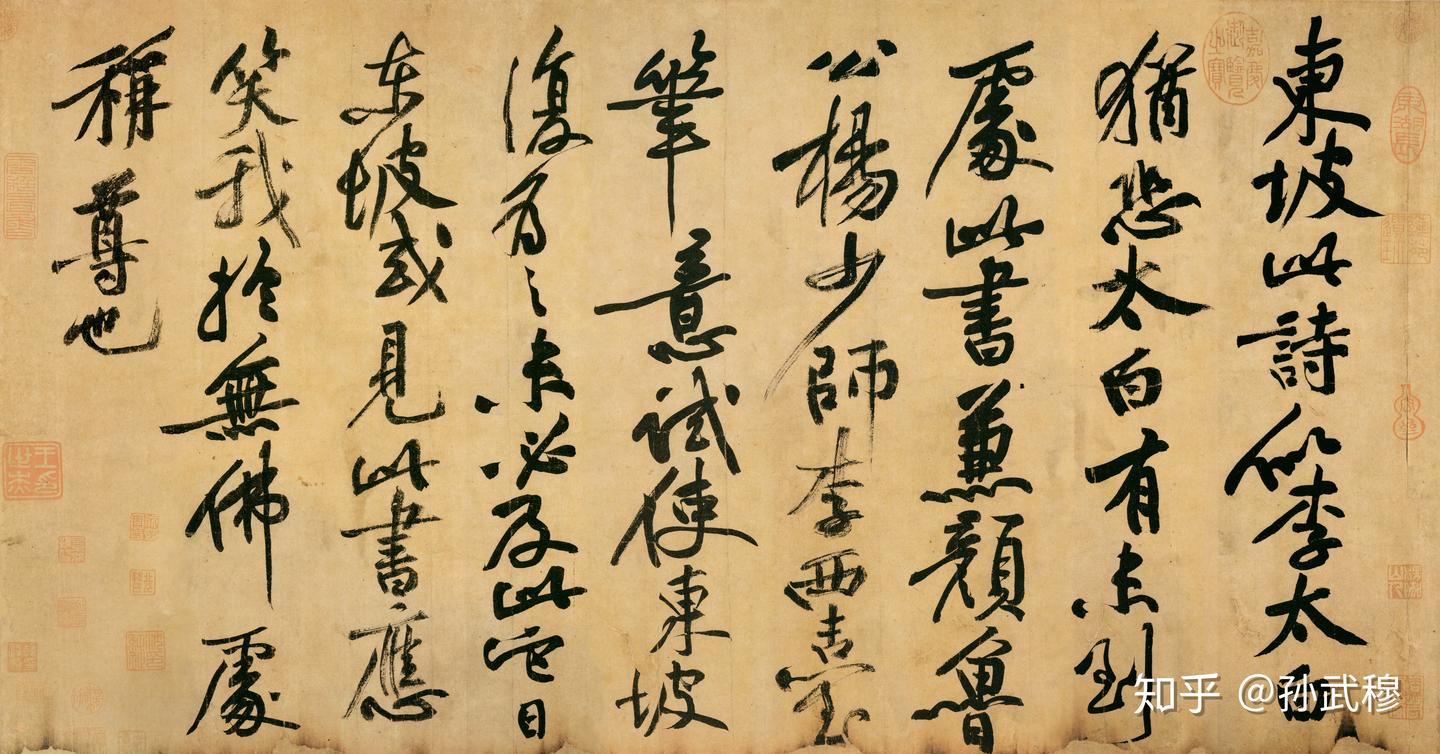 東坡此詩似李太白
猶恐太白有未到
處此書兼顏魯
公楊少師李西臺
筆意試使東坡
復為之未必及此它日
東坡或見此書應
笑我於無佛處
稱尊也
嘉慶御覽之寶
知乎 @孙武穆